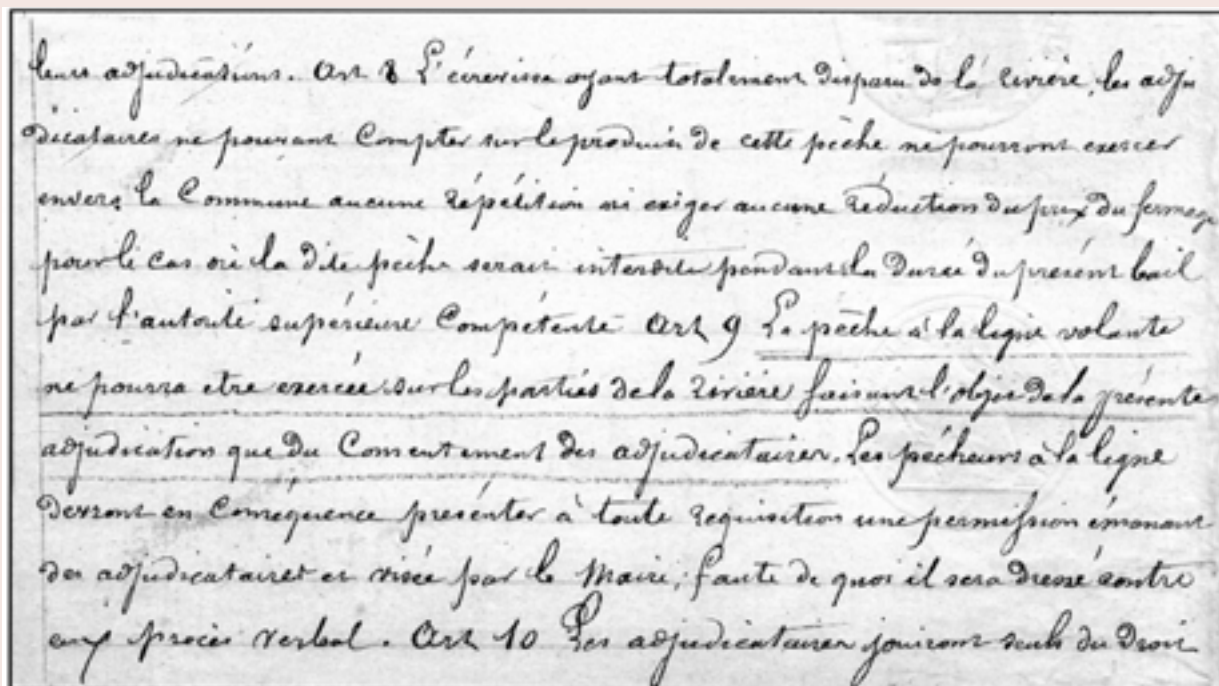 leurs adjudications. Art 8 L'écrevisse ayant totalement disparu de la rivière, les adju
dicataires ne pouvant compter sur le produit de cette pêche ne pourront exercer
envers la Commune aucune répétition ni exiger aucune réduction du prix du fermage
pour le cas où la dite pêche serait interdite pendant la durée du présent bail
par l'autorité supérieure compétente Art 9 La pêche à la ligne volante
ne pourra etre exercée sur les parties de la rivière faisant l'objet de la présente
adjudication que du Consentement des adjudicataires. Les pêcheurs à la ligne
devront en Conséquence présenter à toute requisition une permission émanant
des adjudicataires et visée par le Maire, faute de quoi il sera dressé contre
eux procès verbal. Art 10 Les adjudicataires jouiront seuls du Droit